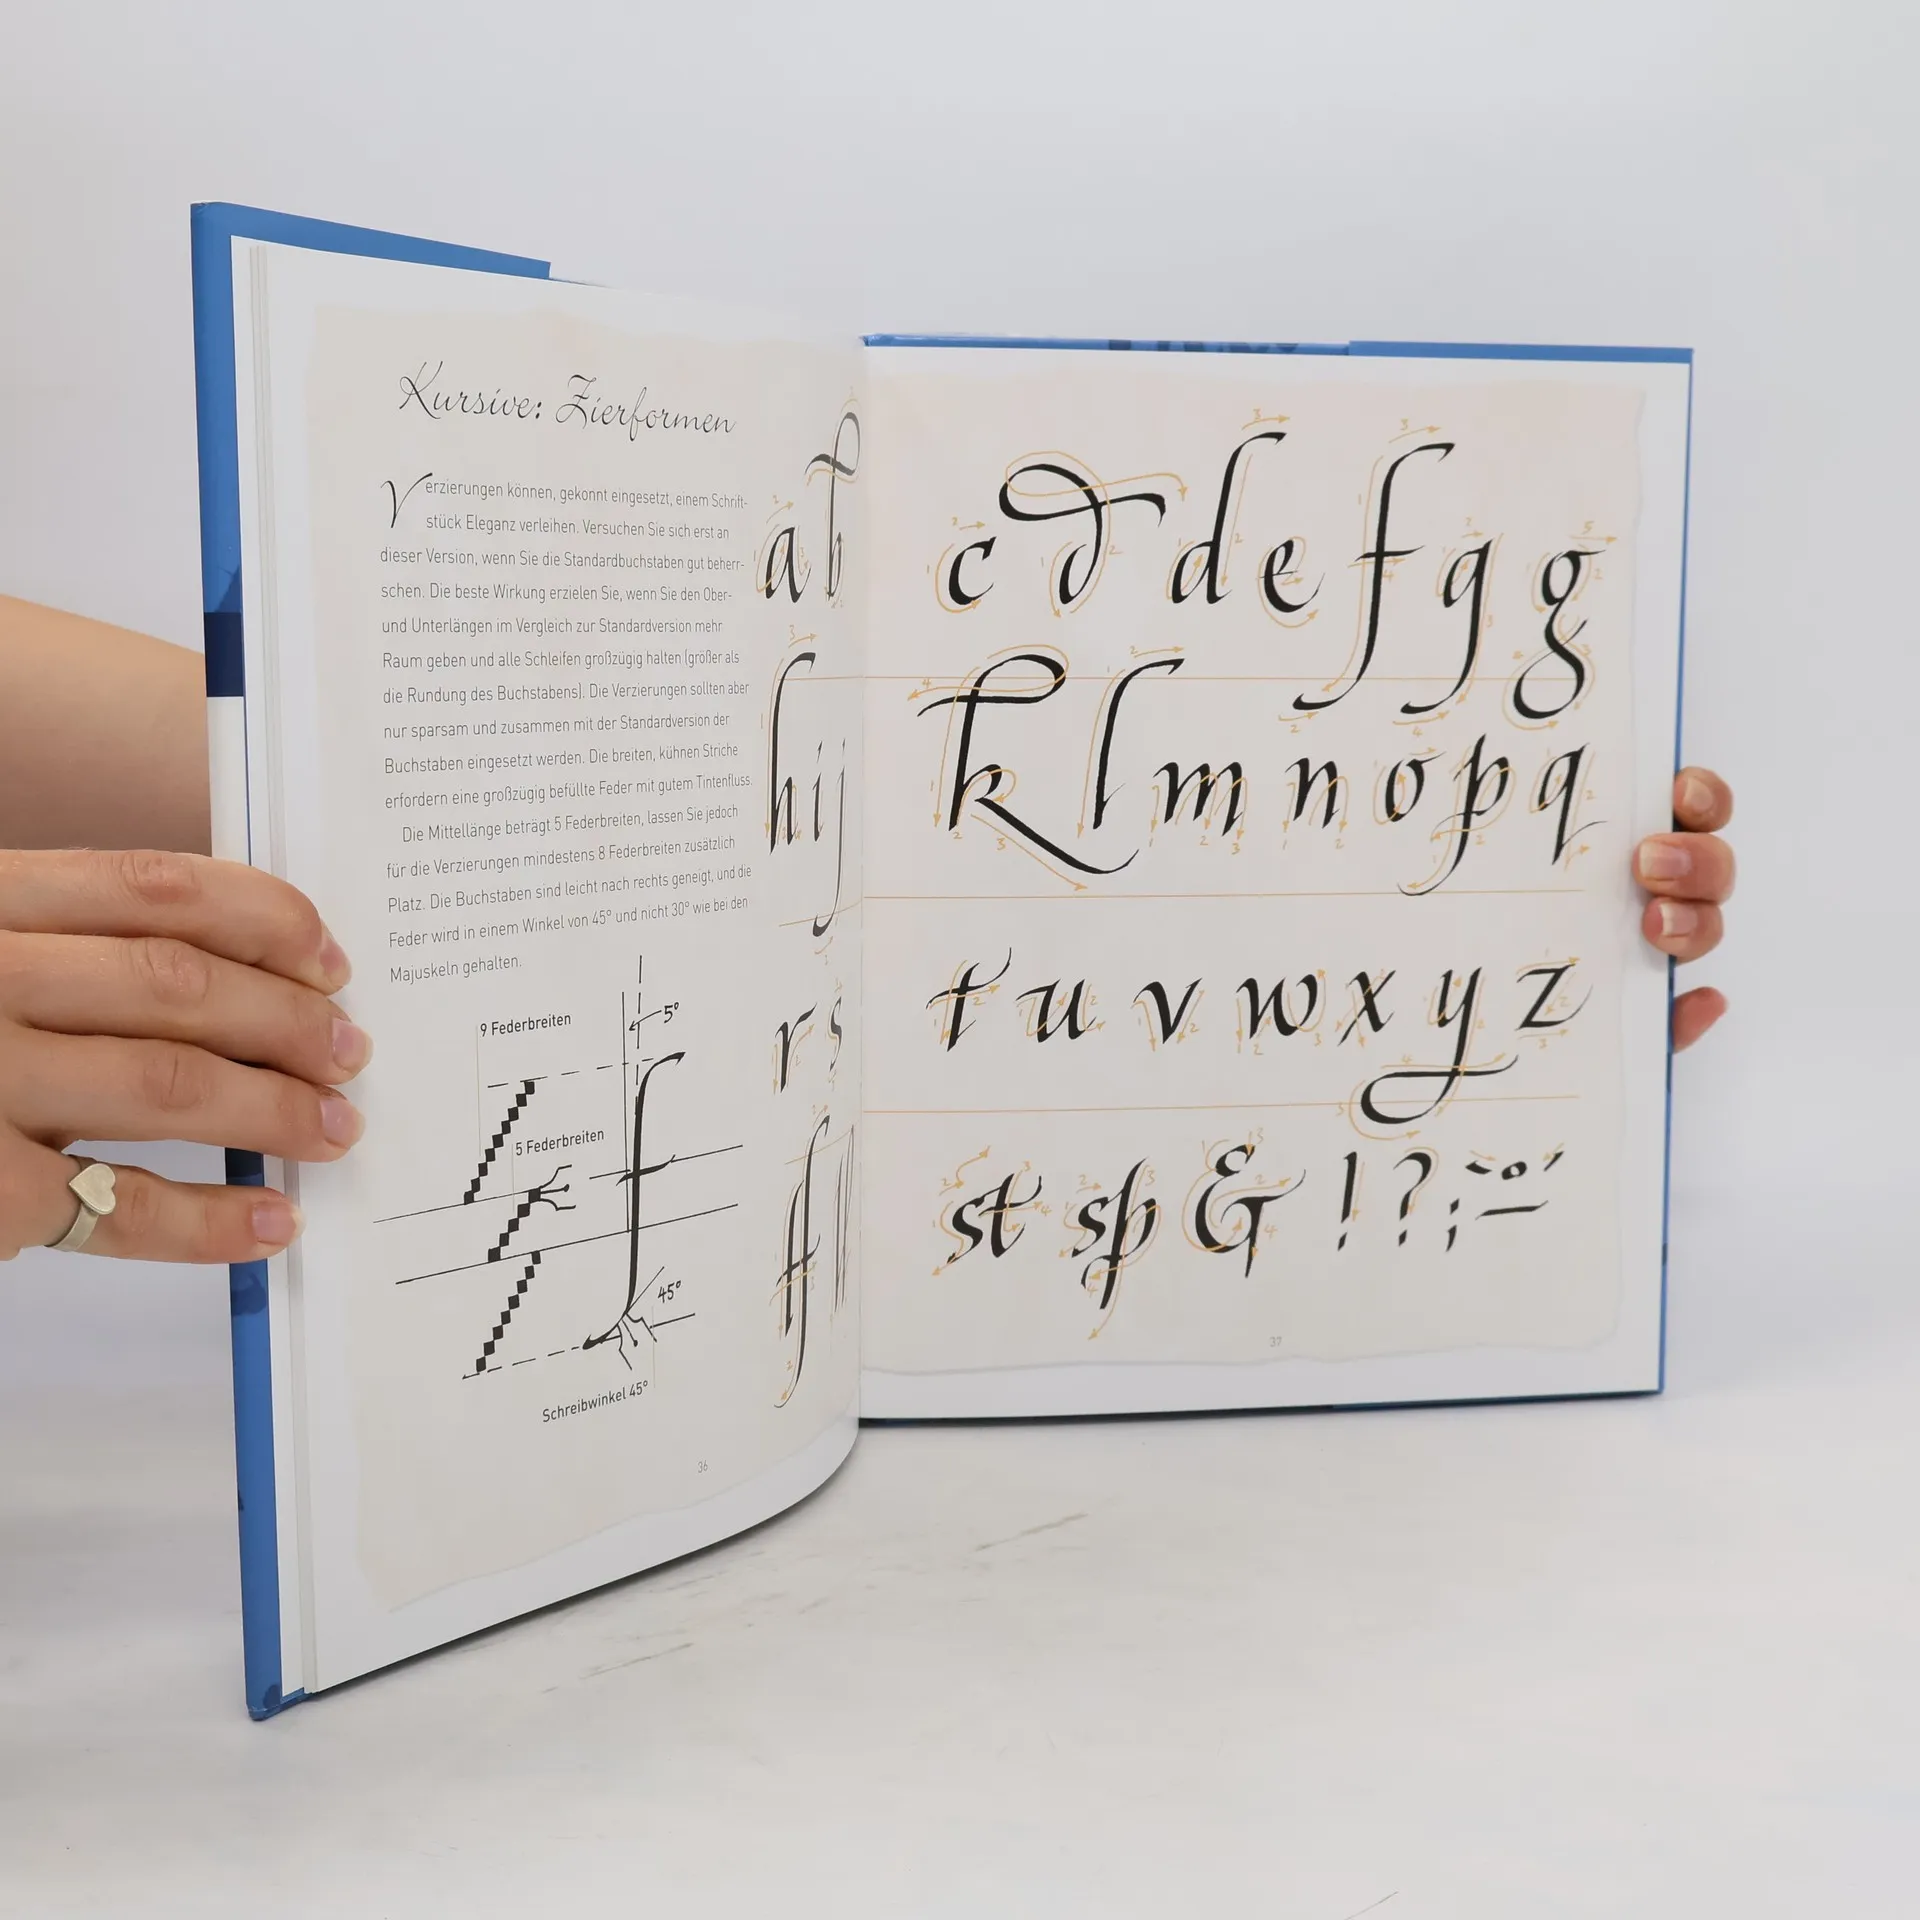 Kursive: Zierformen
Verzierungen können, gekonnt eingesetzt, einem Schrift-
stück Eleganz verleihen. Versuchen Sie sich erst an
dieser Version, wenn Sie die Standardbuchstaben gut beherr-
schen. Die beste Wirkung erzielen Sie, wenn Sie den Ober-
und Unterlängen im Vergleich zur Standardversion mehr
Raum geben und alle Schleifen großzügig halten (größer als
die Rundung des Buchstabens). Die Verzierungen sollten aber
nur sparsam und zusammen mit der Standardversion der
Buchstaben eingesetzt werden. Die breiten, kühnen Striche
erfordern eine großzügig befüllte Feder mit gutem Tintenfluss.
Die Mittellänge beträgt 5 Federbreiten, lassen Sie jedoch
für die Verzierungen mindestens 8 Federbreiten zusätzlich
Platz. Die Buchstaben sind leicht nach rechts geneigt, und die
Feder wird in einem Winkel von 45° und nicht 30° wie bei den
Majuskeln gehalten.
9 Federbreiten
5°
5 Federbreiten
45°
Schreibwinkel 45°
36
a b
h i j
r s
c d d e f g g
k l m n o p q
t u v w x y z
st sp & ! ? ;
37